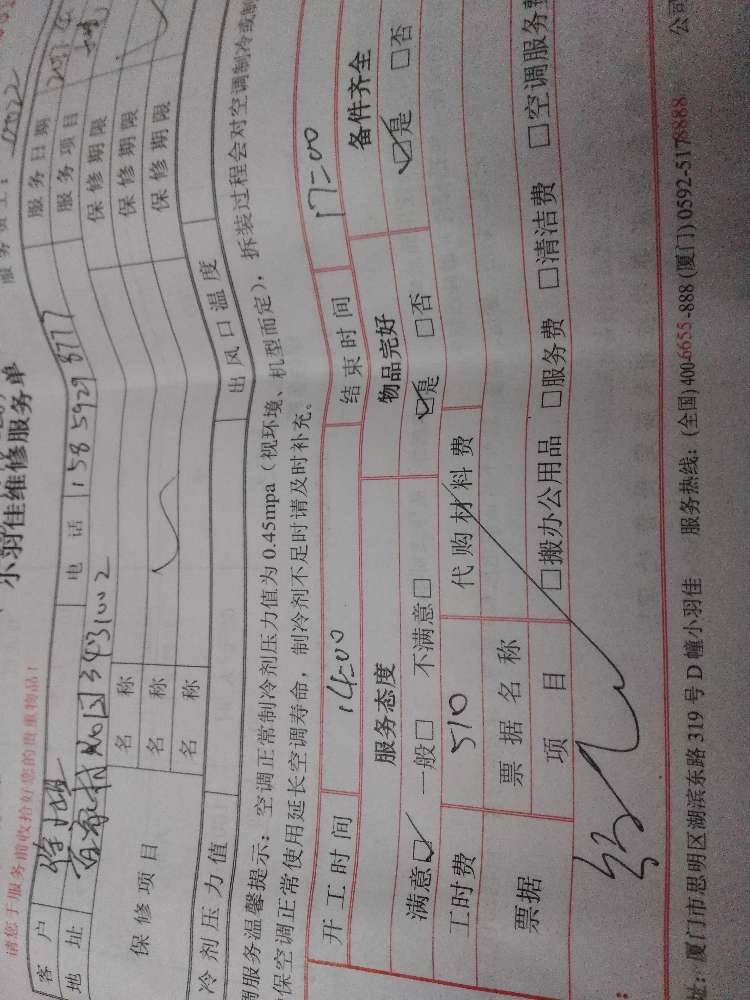 小羽佳维修服务单
请您于服务前收拾好您的贵重物品！
客户 电话 158 5929 8777 服务日期
地址 343 1002 服务项目
保修项目 名称 保修期限
名称 保修期限
名称 保修期限
冷剂压力值 出风口温度
调服务温馨提示：空调正常制冷剂压力值为 0.45mpa（视环境、机型而定），拆装过程会对空调制冷或制
保空调正常使用延长空调寿命，制冷剂不足时请及时补充。
开工时间 14:00 结束时间 17:00
服务态度 物品完好 备件齐全
满意☑ 一般□ 不满意□ ☑是 □否 ☑是 □否
工时费 510 代购材料费
票据 票据名称
项目 □搬办公用品 □服务费 □清洁费 □空调服务费
址：厦门市思明区湖滨东路 319 号 D 幢小羽佳 服务热线：(全国)4006655-888 (厦门)0592-5178888 公司